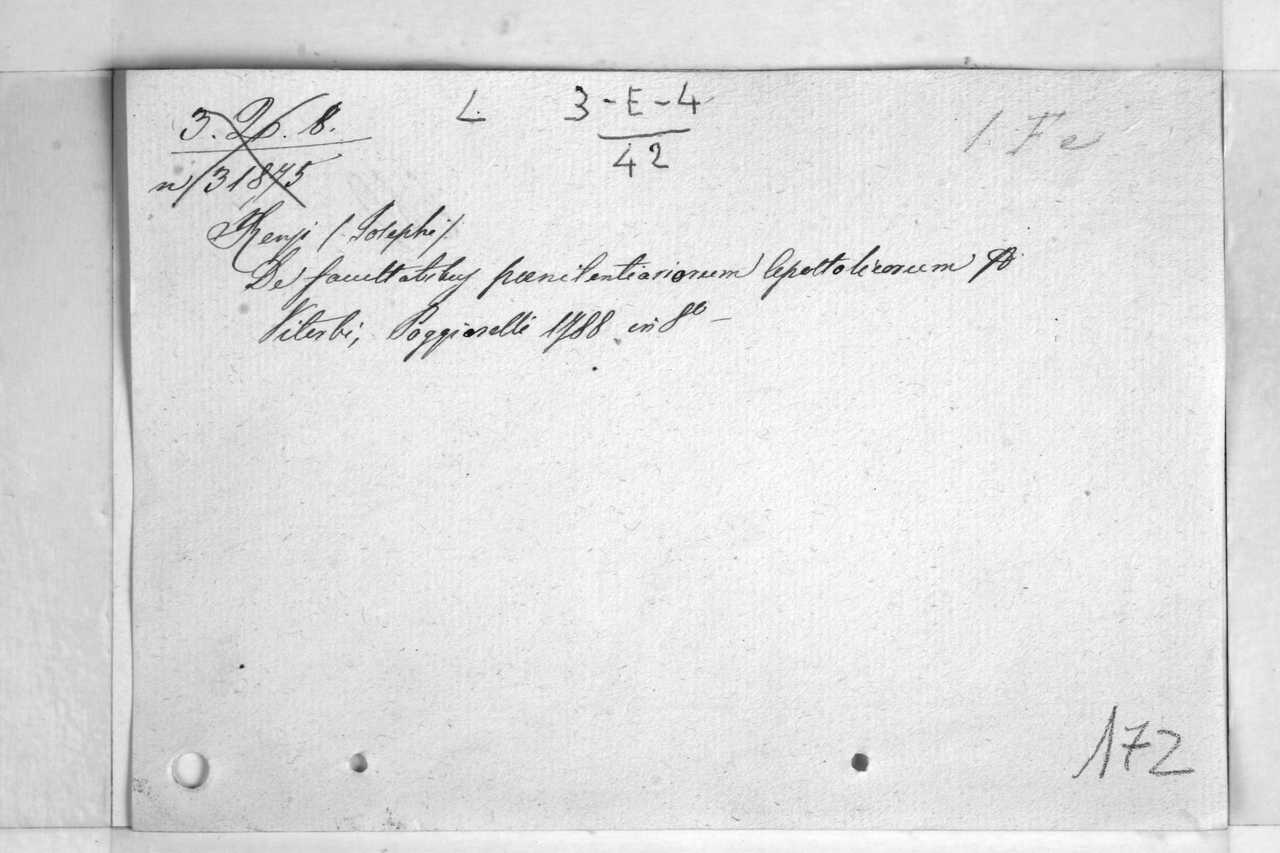 3. 26. 8. L 3-E-4
n/31875 42
(Josephi)
De facultatibus pœnitentiariorum Apostolicorum
Viterbi, Poggiarelli 1788 in 8º -
172